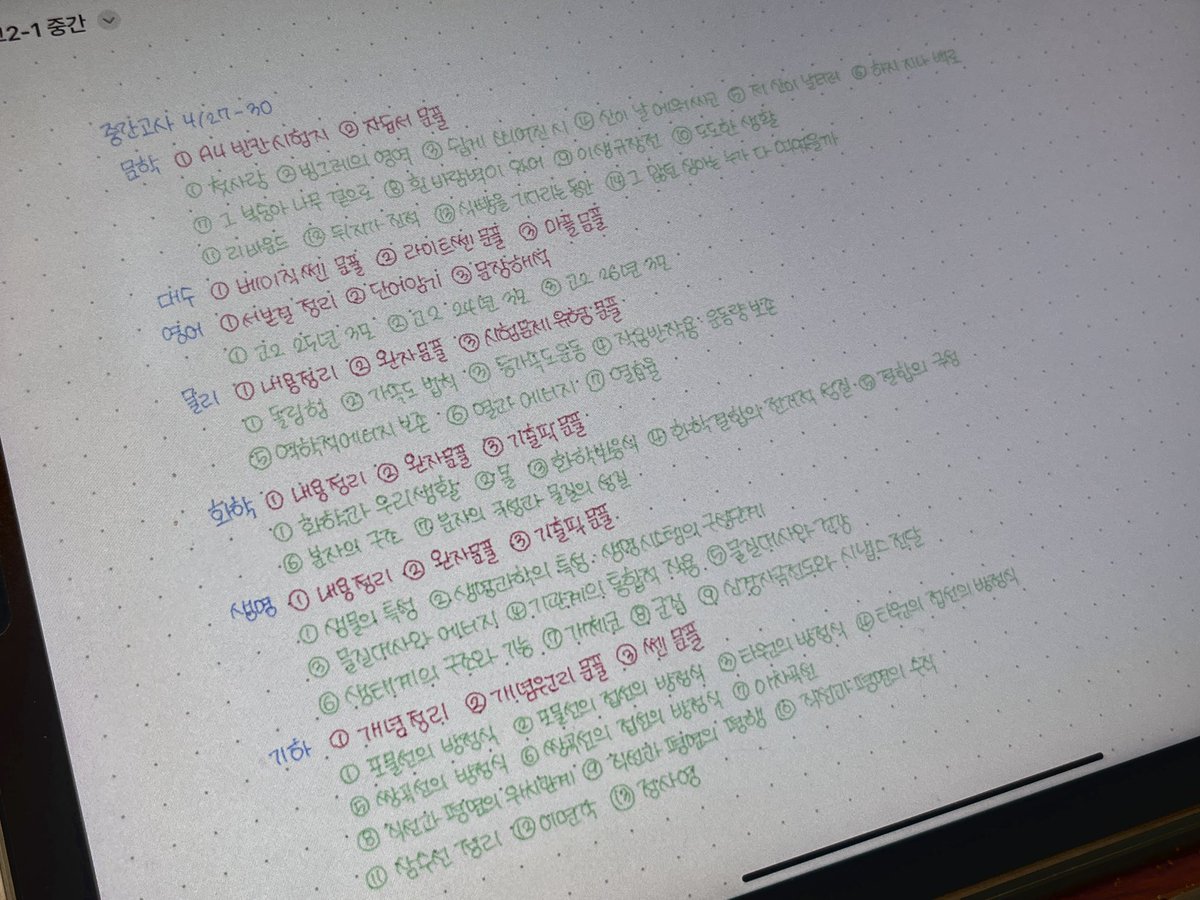 2-1 중간
중간고사 4/27-30
문학 ① A4 빈칸시험지 ② 자습서 문풀
① 첫사랑 ② 방그레의 영역 ③ 쉽게 씌어진 시 ④ 산이 날 에워싸고 ⑤ 저 산이 날더러 ⑥ 하지 지나 백로
⑦ 그 복숭아 나무 곁으로 ⑧ 흰 바람벽이 있어 ⑨ 이생규장전 ⑩ 도도한 생활
⑪ 리바운드 ⑫ 뒤지가 진적 ⑬ 식빵을 기다리는 동안 ⑭ 그 많던 싱아는 누가 다 먹었을까
대수 ① 베이직쎈 문풀 ② 라이트쎈 문풀 ③ 마플 문풀
영어 ① 서브젝 정리 ② 단어암기 ③ 문장해석
① 고2 25년 3모 ② 고2 24년 3모 ③ 고2 26년 3모
물리 ① 내용정리 ② 완자문풀 ③ 시험문제 유형 문풀
① 돌림힘 ② 가속도 법칙 ③ 등가속도운동 ④ 작용반작용·운동량 보존
⑤ 역학적에너지 보존 ⑥ 열과 에너지 ⑦ 열효율
화학 ① 내용정리 ② 완자문풀 ③ 기출픽 문풀
① 화학과 우리생활 ② 몰 ③ 화학반응식 ④ 화학결합의 전기적 성질 ⑤ 결합의 구형
⑥ 분자의 구조 ⑦ 분자의 극성과 물질의 성질
생명 ① 내용정리 ② 완자문풀 ③ 기출픽 문풀
① 생물의 특성 ② 생명과학의 특성·생명시스템의 구성단계
③ 물질대사와 에너지 ④ 기관계의 통합적 작용 ⑤ 물질대사와 건강
⑥ 생태계의 구조와 기능 ⑦ 개체군 ⑧ 군집 ⑨ 신경자극전도와 시냅스 전달
기하 ① 개념정리 ② 개념원리 문풀 ③ 쎈 문풀
① 포물선의 방정식 ② 포물선의 접선의 방정식 ③ 타원의 방정식 ④ 타원의 접선의 방정식
⑤ 쌍곡선의 방정식 ⑥ 쌍곡선의 접선의 방정식 ⑦ 이차곡선
⑧ 직선과 평면의 위치관계 ⑨ 직선과 평면의 평행 ⑩ 직선과 평면의 수직
⑪ 삼수선 정리 ⑫ 이면각 ⑬ 정사영